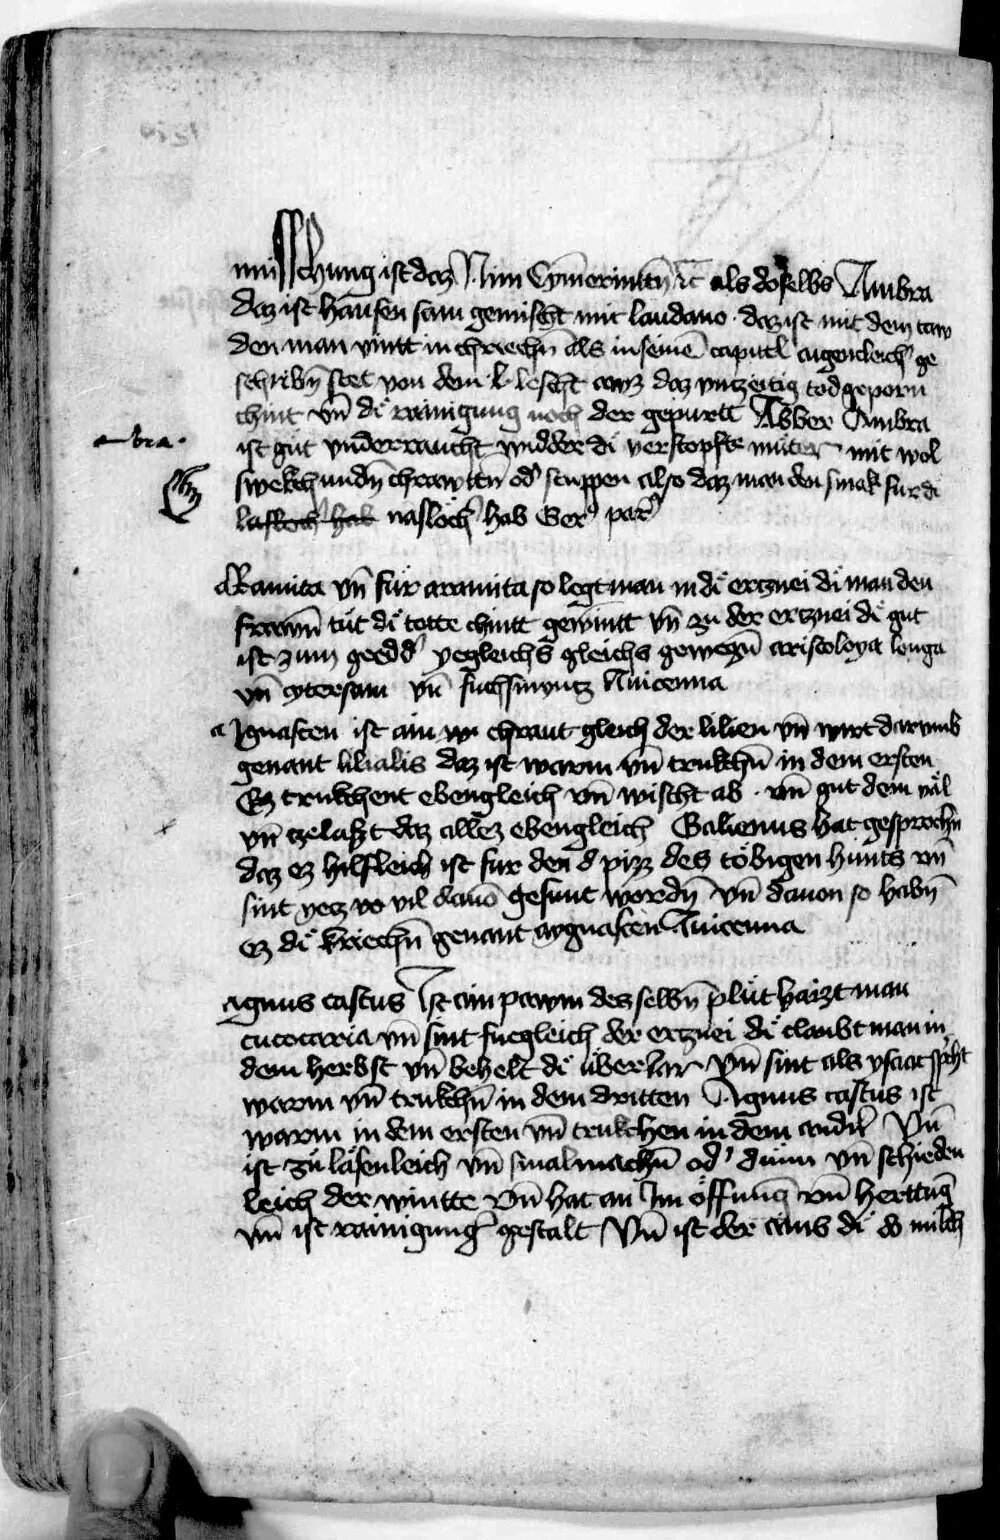 mischung ist daz Nim Cymerinttn̄ ꝛc als doselbs Ambra
daz ist hausen sam gemischt mit laudano · daz ist mit dem taw
den man vintt in chriechn̄ als in seinē capitl aigencleich ge
schribn̄ stet von dem ·l· lescht auz daz vntzeitig tod geporn
chint vn̄ di rainigung noch der gepurtt Abber Ambra
ist gut vnderraucht widder di verstopfte muter mit wol
smekchundn̄ chrawttn̄ od' scuppen also daz man den smak fur di
nasloch' hab Ser' par'
bra ·
Aramita vn̄ fur aramita so legt man in di ertznei di man den
frawn̄ tut di totte chintt gewintt vn̄ zu der ertznei di gut
ist zum geedd' yegleichs gleichs gewegn̄ aristoloya longa
vn̄ cytersam vn̄ fuchsmyntz Auicenna
a Ignasten ist ain chraut gleich der lilien vn̄ wirt darumb
genant lilialis daz ist warm vn̄ trukhn̄ in dem ersten
Ez trukchent ebengleich vn̄ wischt ab · vn̄ gut dem mäl
vn̄ tzelaßt daz allez ebengleich Galienus hat gesprochn̄
daz ez hilfleich ist fur den pizz des töbigen hunts vn̄
sint yetz vo vil dauō gesunt wordn̄ vn̄ dauon so habn̄
ez di kriechn̄ genant aygnasten Auicenna
agnus castus Ist ain pawm des selbn̄ plüt haizt man
cucocaria vn̄ sint fuegleich der ertznei di claubt man in
dem herbst vn̄ behelt di uber lar Vn̄ sint als ysaac spricht
warm vn̄ trukhn̄ in dem dritten Agnus castus ist
warm in dem ersten vn̄ trukchen in dem andn̄ Vn̄
ist zu läsenleich vn̄ smalmachn̄ od' dünn vn̄ schieden
leich der wintte vn̄ hat an Im öffnung vn̄ herttug
vn̄ ist rainigung gestalt Vn̄ ist der ains di do milch